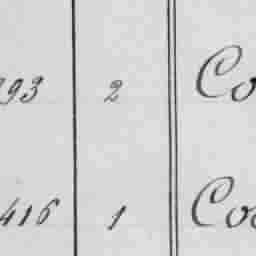 293 2 Co
416 1 Coo